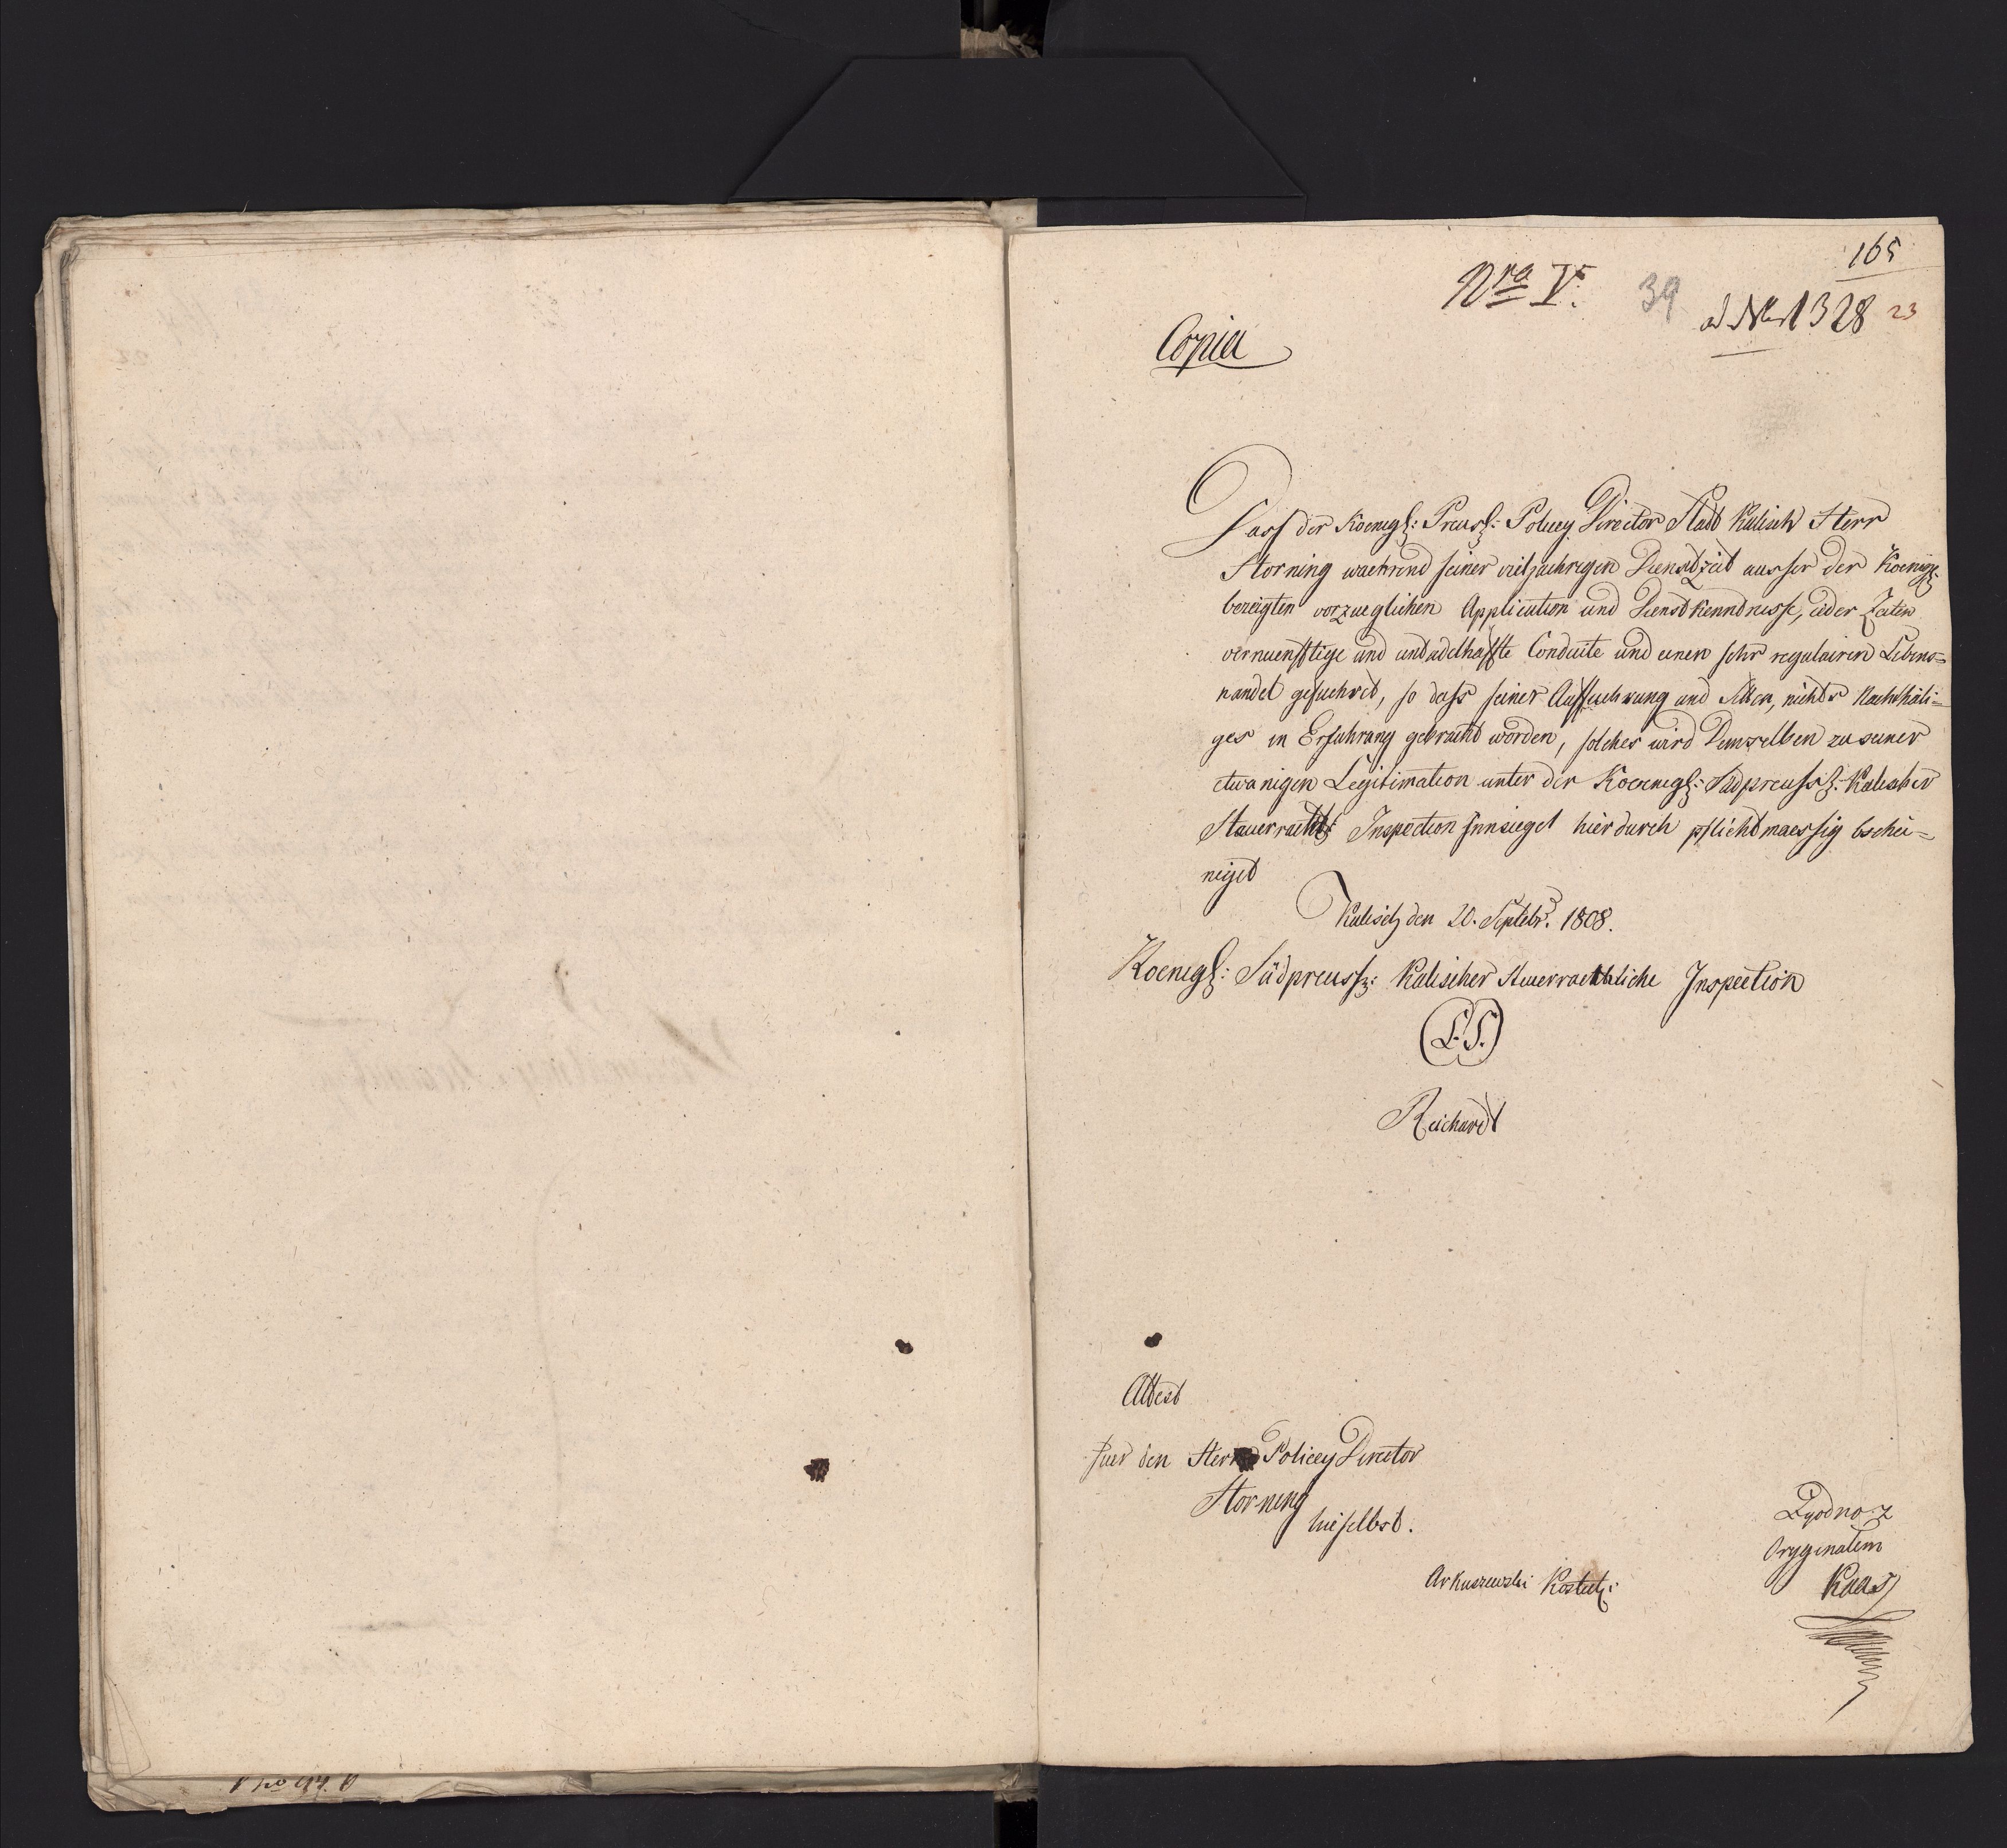 165
Nra V.
39
ad Nr 1328 23
Copia
Dass der Koenigl: Preusl: Policey Director Stadt Kalisch Herr
Storning waehrend seiner vieljaehrigen Dienstzeit ausser der
bezeigten vorzueglichen Application und Dienstkenndnisse, Zeiten
vernuenfftige und untadelhaffte Conduite und einen sehr regulairen Lebens=
wandel gefuehret, so dass seiner Auffuehrung und Sitten, nichts Nachthäli=
ges in Erfahrung gebracht worden, solches wird Demselben zu seiner
etwanigen Legitimation unter der Koenigl: Südpreussl: Kalischer
Steuerräthl: Inspection Innsiegel hierdurch pflichtmaessig beschei=
niget
Kalisch den 20. Septebr. 1808.
Koenigl: Südpreuss: Kalischer Steuerraethliche Inspection
(L.S.)
Reichardt
Attest
fuer den Herrn Policey Director
Storning
hieselbst.
Zgodno z
Oryginałem
Kaas
Arkuszewski